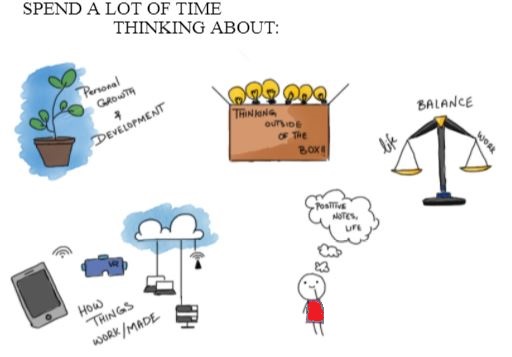 SPEND A LOT OF TIME
THINKING ABOUT:
Personal
GROWTH
&
DEVELOPMENT
THINKING
OUTSIDE
OF THE
BOX!!
BALANCE
life
WORK
VR
HOW
THINGS
WORK/MADE
POSITIVE
NOTES,
LIFE